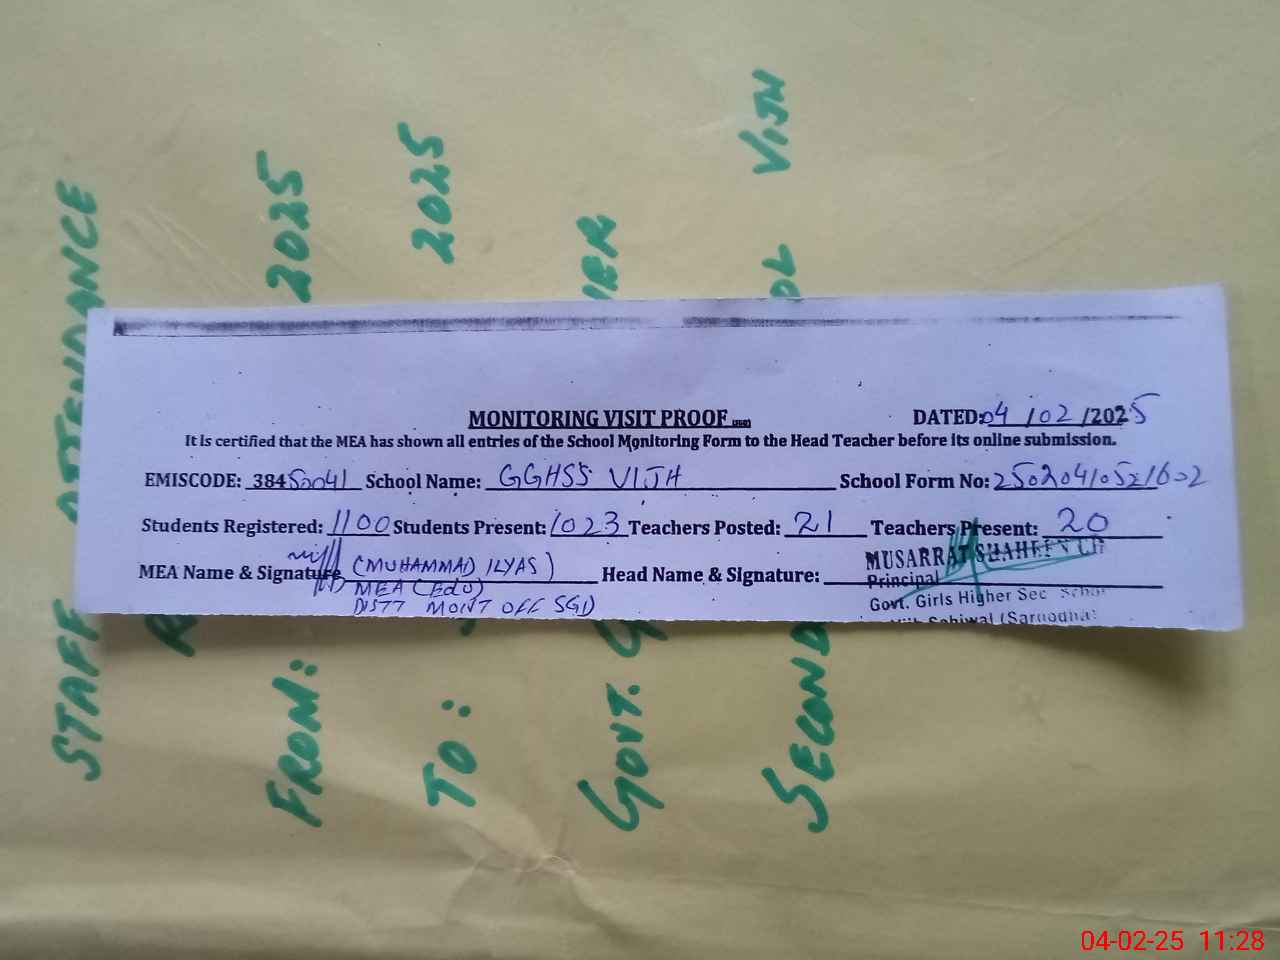 MONITORING VISIT PROOF
DATED: 04/02/2025
It is certified that the MEA has shown all entries of the School Monitoring Form to the Head Teacher before its online submission.
EMISCODE: 38450041 School Name: GGHSS VIJH School Form No: 25020410521602
Students Registered: 1100 Students Present: 1023 Teachers Posted: 21 Teachers Present: 20
MEA Name & Signature (MUHAMMAD ILYAS) Head Name & Signature:
MEA (Edu)
DISTT MONIT OFF SGD
MUSARRAT SHAHEEN
Principal
Govt. Girls Higher Sec School
Sahiwal (Sargodha)
STAFF ATTENDANCE
FROM: 2025
TO: 2025
GOVT.
SECOND OL VIJH
04-02-25 11:28